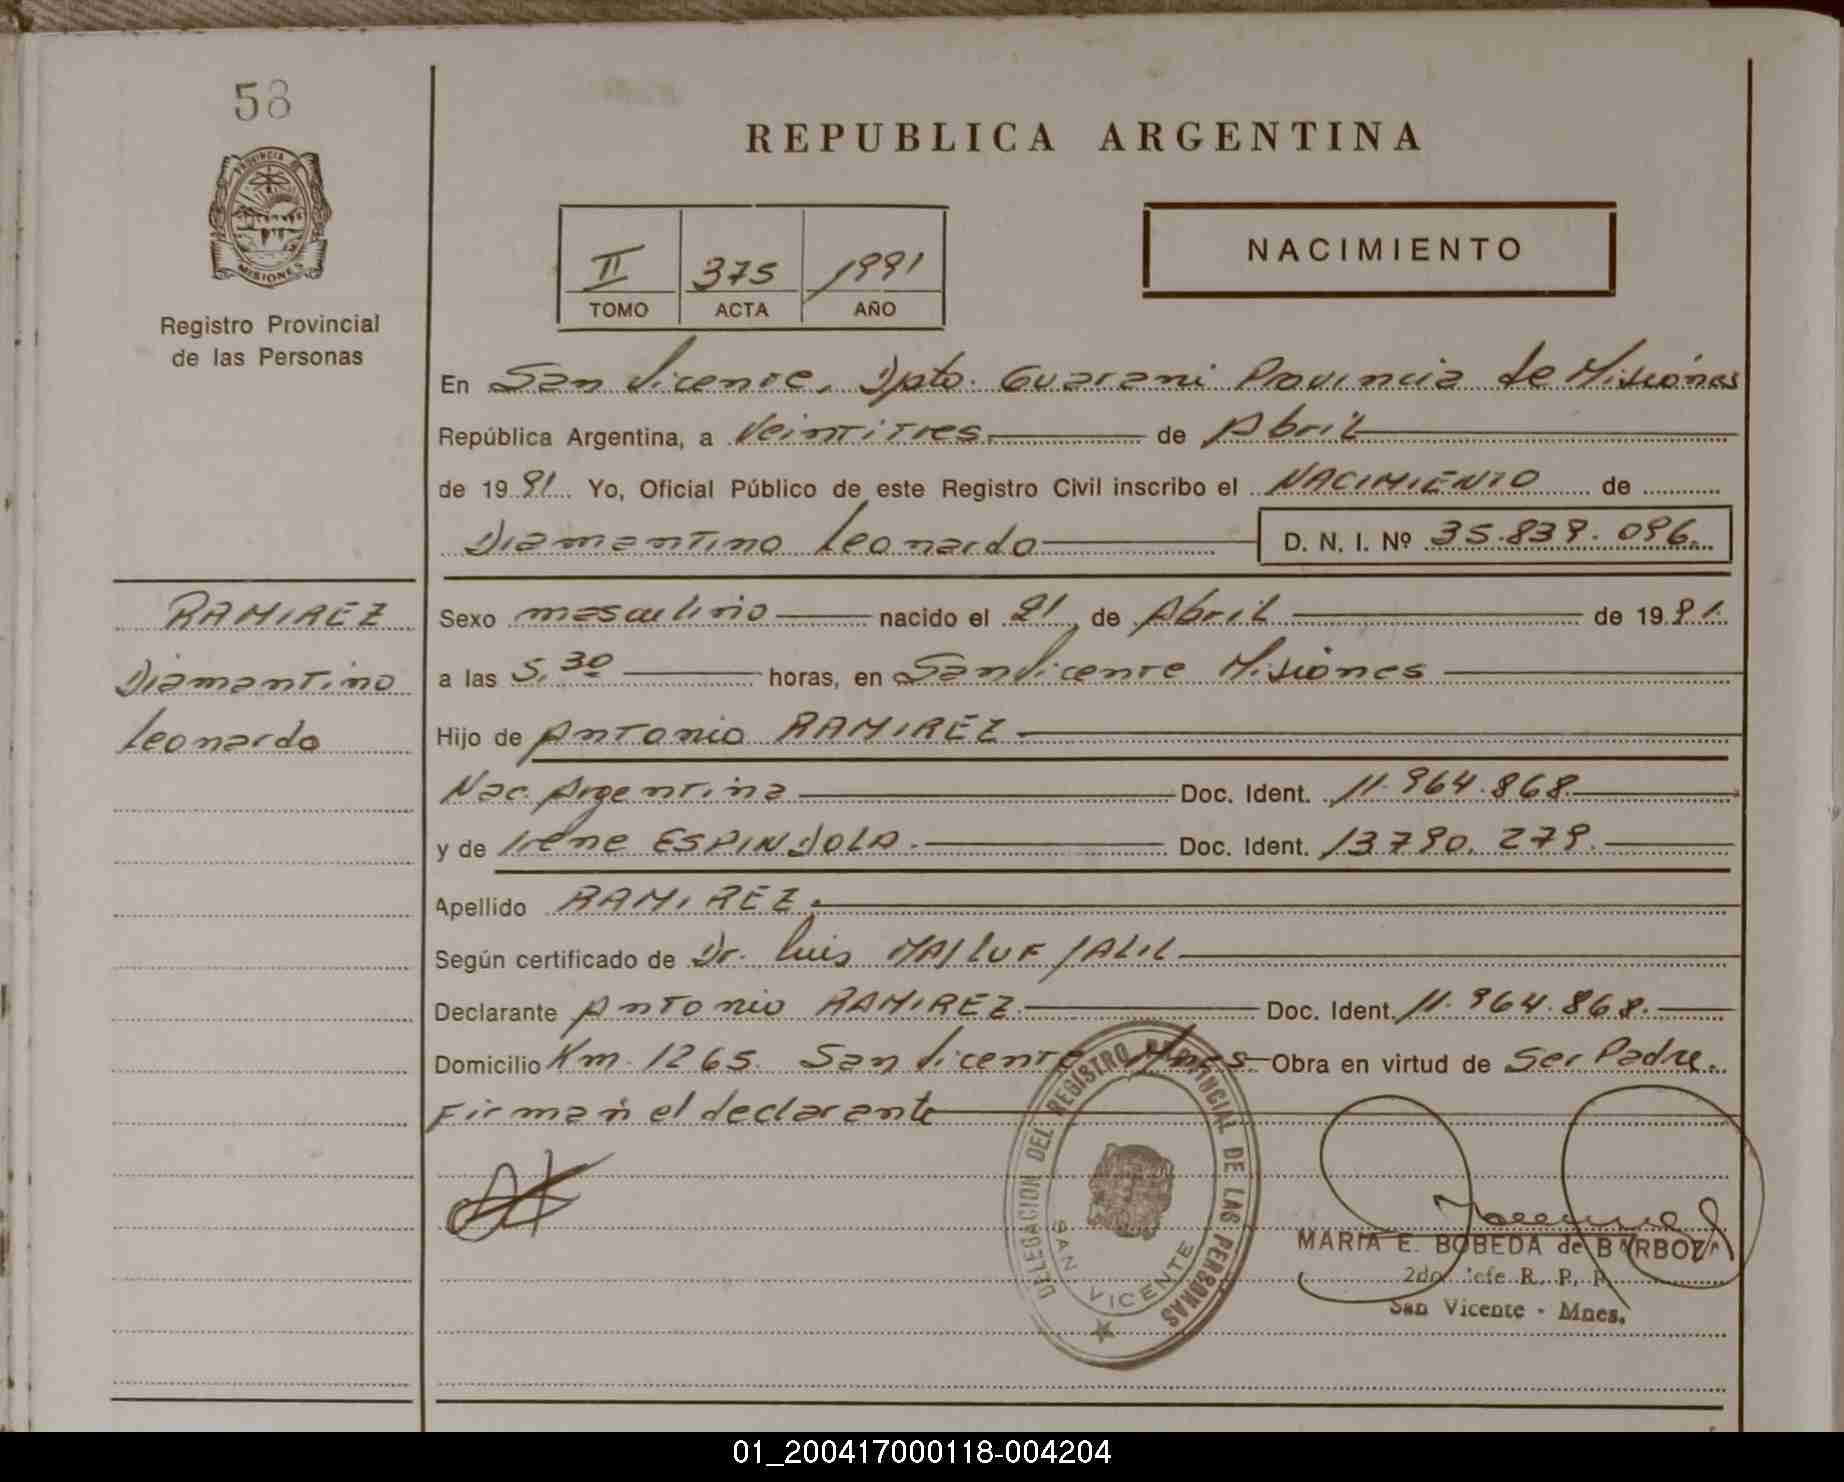 58
PROVINCIA DE
MISIONES
Registro Provincial
de las Personas
REPUBLICA ARGENTINA
II 375 1991
TOMO ACTA AÑO
NACIMIENTO
En San Vicente, Dpto. Guarani Provincia de Misiones
República Argentina, a Veintitres de Abril
de 1991 Yo, Oficial Público de este Registro Civil inscribo el NACIMIENTO de
Diamantino Leonardo D. N. I. Nº 35.839.096.
RAMIREZ
Diamantino
Leonardo
Sexo masculino nacido el 21 de Abril de 1991.
a las 5.30 horas, en San Vicente Misiones
Hijo de Antonio RAMIREZ
Nac. Argentina Doc. Ident. 11.964.868.
y de Irene ESPINDOLA. Doc. Ident. 13790.279.
Apellido RAMIREZ.
Según certificado de Dr. Luis MALLUF JALIL
Declarante Antonio RAMIREZ. Doc. Ident. 11.964.868.
Domicilio Km. 1265. San Vicente Mnes. Obra en virtud de Ser Padre.
Firman el declarante
DELEGACION DEL REGISTRO PROVINCIAL DE LAS PERSONAS
SAN VICENTE
MARIA E. BOBEDA de BARBOZA
2do. Jefe R. P. P.
San Vicente - Mnes.
01_200417000118-004204